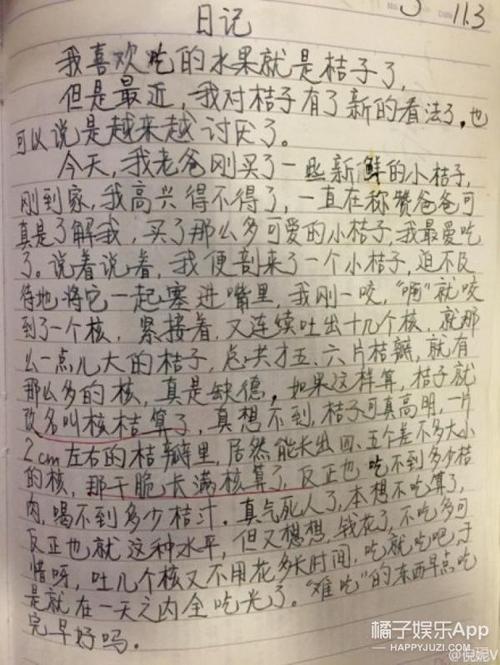 5 11.3
日记
我喜欢吃的水果就是桔子了,
但是最近,我对桔子有了新的看法了,也
可以说是越来越讨厌了。
今天,我老爸刚买了一些新鲜的小桔子,
刚到家,我高兴得不得了,一直在称赞爸爸可
真是了解我,买了那么多可爱的小桔子,我最爱吃
了。说着说着,我便剖来了一个小桔子,迫不及
待地将它一起塞进嘴里,我刚一咬,“啊”就咬
到了一个核,紧接着,又连续吐出十几个核,就那
么一点儿大的桔子,总共才五、六片桔瓣,就有
那么多的核,真是缺德,如果这样算,桔子就
改名叫核桔算了,真想不到,桔子可真高明,一片
2cm左右的桔瓣里,居然能长出四、五个差不多大小
的核,那干脆长满核算了,反正也吃不到多少桔
肉,喝不到多少桔汁。真气死人了,本想不吃算了,
反正也就这种水平,但又想想,钱花了,不吃多可
惜呀,吐几个核又不用花多长时间,吃就吃吧,于
是就在一天之内全吃光了。“难吃”的东西早点吃
完早好吗。
橘子娱乐App
HAPPYJUZI.COM
@倪妮V